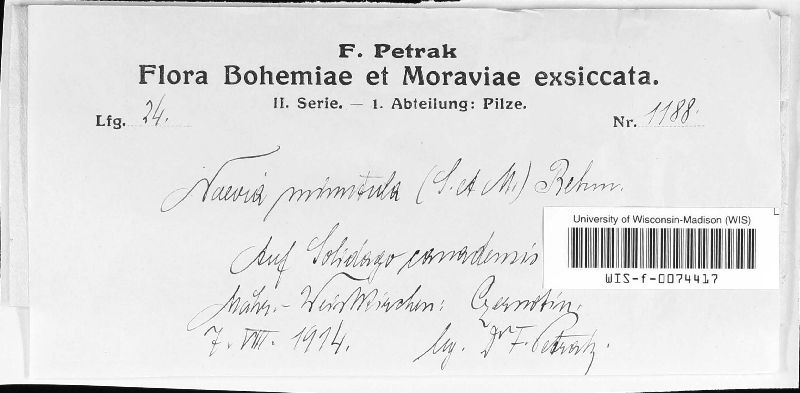 F. Petrak
Flora Bohemiae et Moraviae exsiccata.
II. Serie. — 1. Abteilung: Pilze.
Lfg. 24.
Nr. 1188.
Naevia minutula (S. et M.) Rehm.
University of Wisconsin-Madison (WIS)
WIS-f-0074417
Auf Solidago canadensis
Mähr.-Weisskirchen: Czernotin.
7. VIII. 1914. lg. Dr F. Petrak.